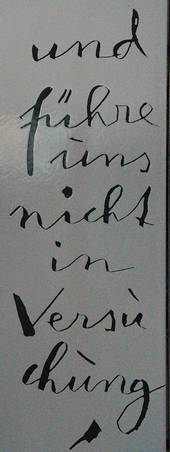 und
führe
uns
nicht
in
Versu
chung
,